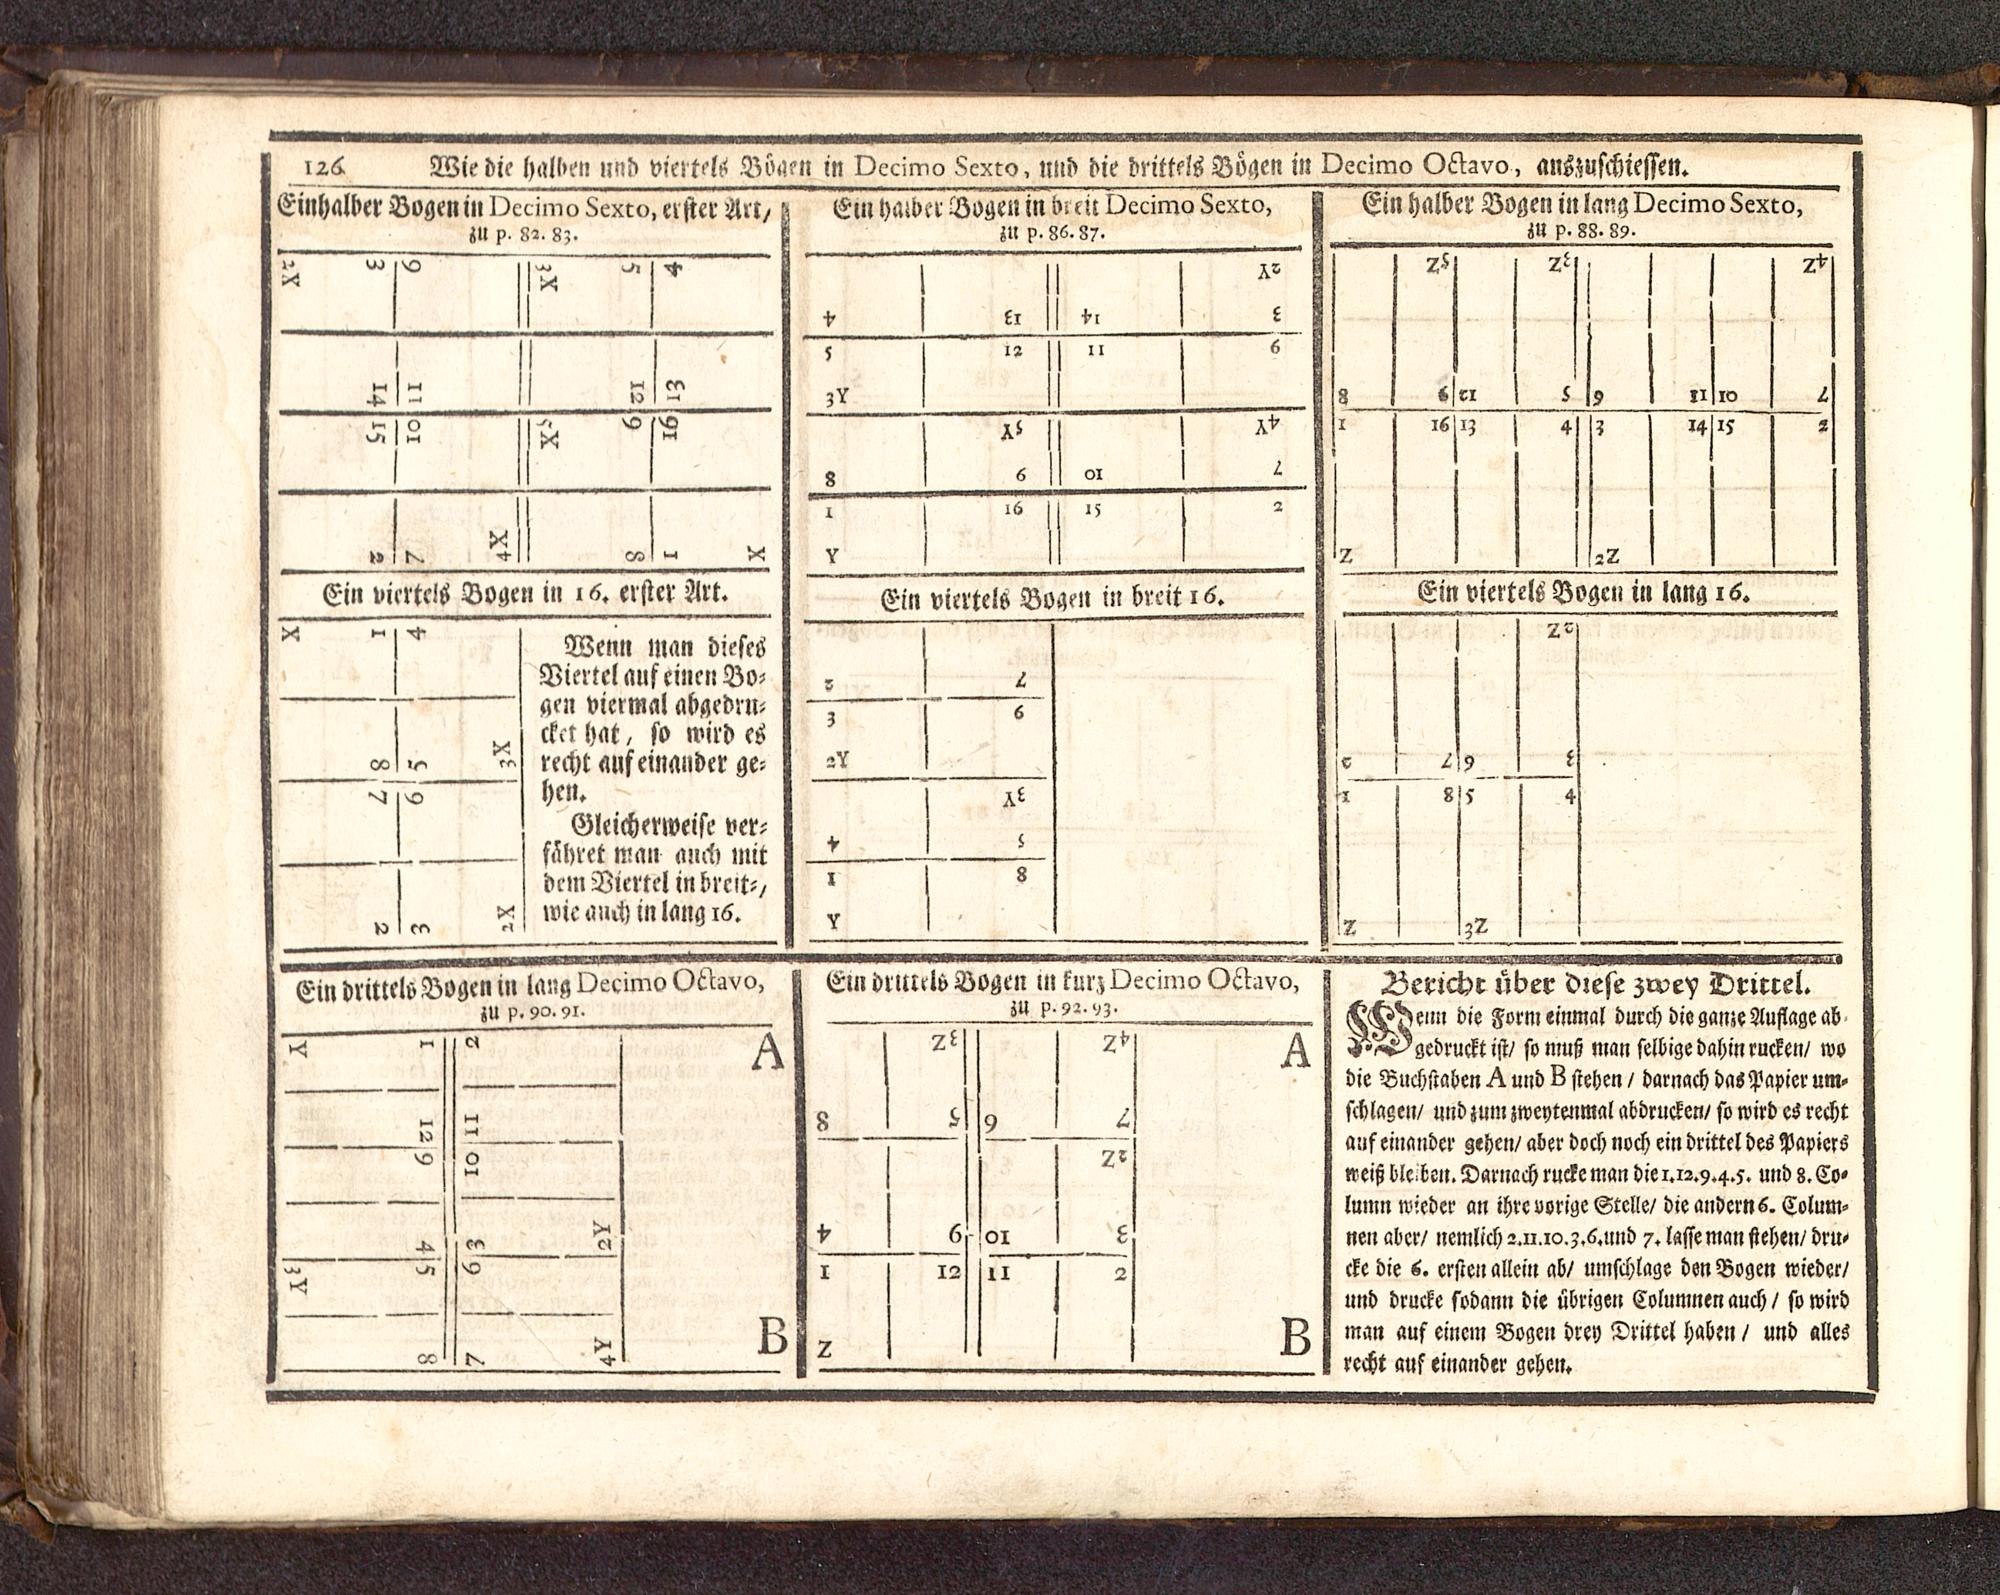 126 Wie die halben und viertels Bögen in Decimo Sexto, und die drittels Bögen in Decimo Octavo, auszuschiessen.
Ein halber Bogen in Decimo Sexto, erster Art/
zu p. 82. 83.
2X 3 6 3X 5 4
14 11 12 13
15 10 5X 9 16
2 7 4X 8 1 X
Ein viertels Bogen in 16. erster Art.
X 1 4
8 5 3X
7 6
2 3 2X
Wenn man dieses
Viertel auf einen Bo-
gen viermal abgedru-
cket hat, so wird es
recht auf einander ge-
hen.
Gleicherweise ver-
fähret man auch mit
dem Viertel in breit-/
wie auch in lang 16.
Ein halber Bogen in breit Decimo Sexto,
zu p. 86. 87.
2Y
4 13 14 3
5 12 11 6
3Y
5Y 4Y
8 9 10 7
1 16 15 2
Y
Ein viertels Bogen in breit 16.
2 7
3 6
2Y
3Y
4 5
1 8
Y
Ein halber Bogen in lang Decimo Sexto,
zu p. 88. 89.
5Z 3Z 4Z
8 9 12 5 6 11 10 7
1 16 13 4 3 14 15 2
Z 2Z
Ein viertels Bogen in lang 16.
2Z
2 7 6 3
1 8 5 4
Z 3Z
Ein drittels Bogen in lang Decimo Octavo,
zu p. 90. 91.
Y 1 2 A
12 11
9 10
4 3 2Y
3Y 5 6
8 7 4Y B
Ein drittels Bogen in kurz Decimo Octavo,
zu p. 92. 93.
3Z 4Z A
8 5 6 7
2Z
4 9 10 3
1 12 11 2
Z B
Bericht über diese zwey Drittel.
Wenn die Form einmal durch die ganze Auflage ab-
gedruckt ist/ so muß man selbige dahin rucken/ wo
die Buchstaben A und B stehen/ darnach das Papier um-
schlagen/ und zum zweytenmal abdrucken/ so wird es recht
auf einander gehen/ aber doch noch ein drittel des Papiers
weiß bleiben. Darnach rucke man die 1.12.9.4.5. und 8. Co-
lumn wieder an ihre vorige Stelle/ die andern 6. Colum-
nen aber/ nemlich 2.11.10.3.6. und 7. lasse man stehen/ dru-
cke die 6. ersten allein ab/ umschlage den Bogen wieder/
und drucke sodann die übrigen Columnen auch/ so wird
man auf einem Bogen drey Drittel haben/ und alles
recht auf einander gehen.